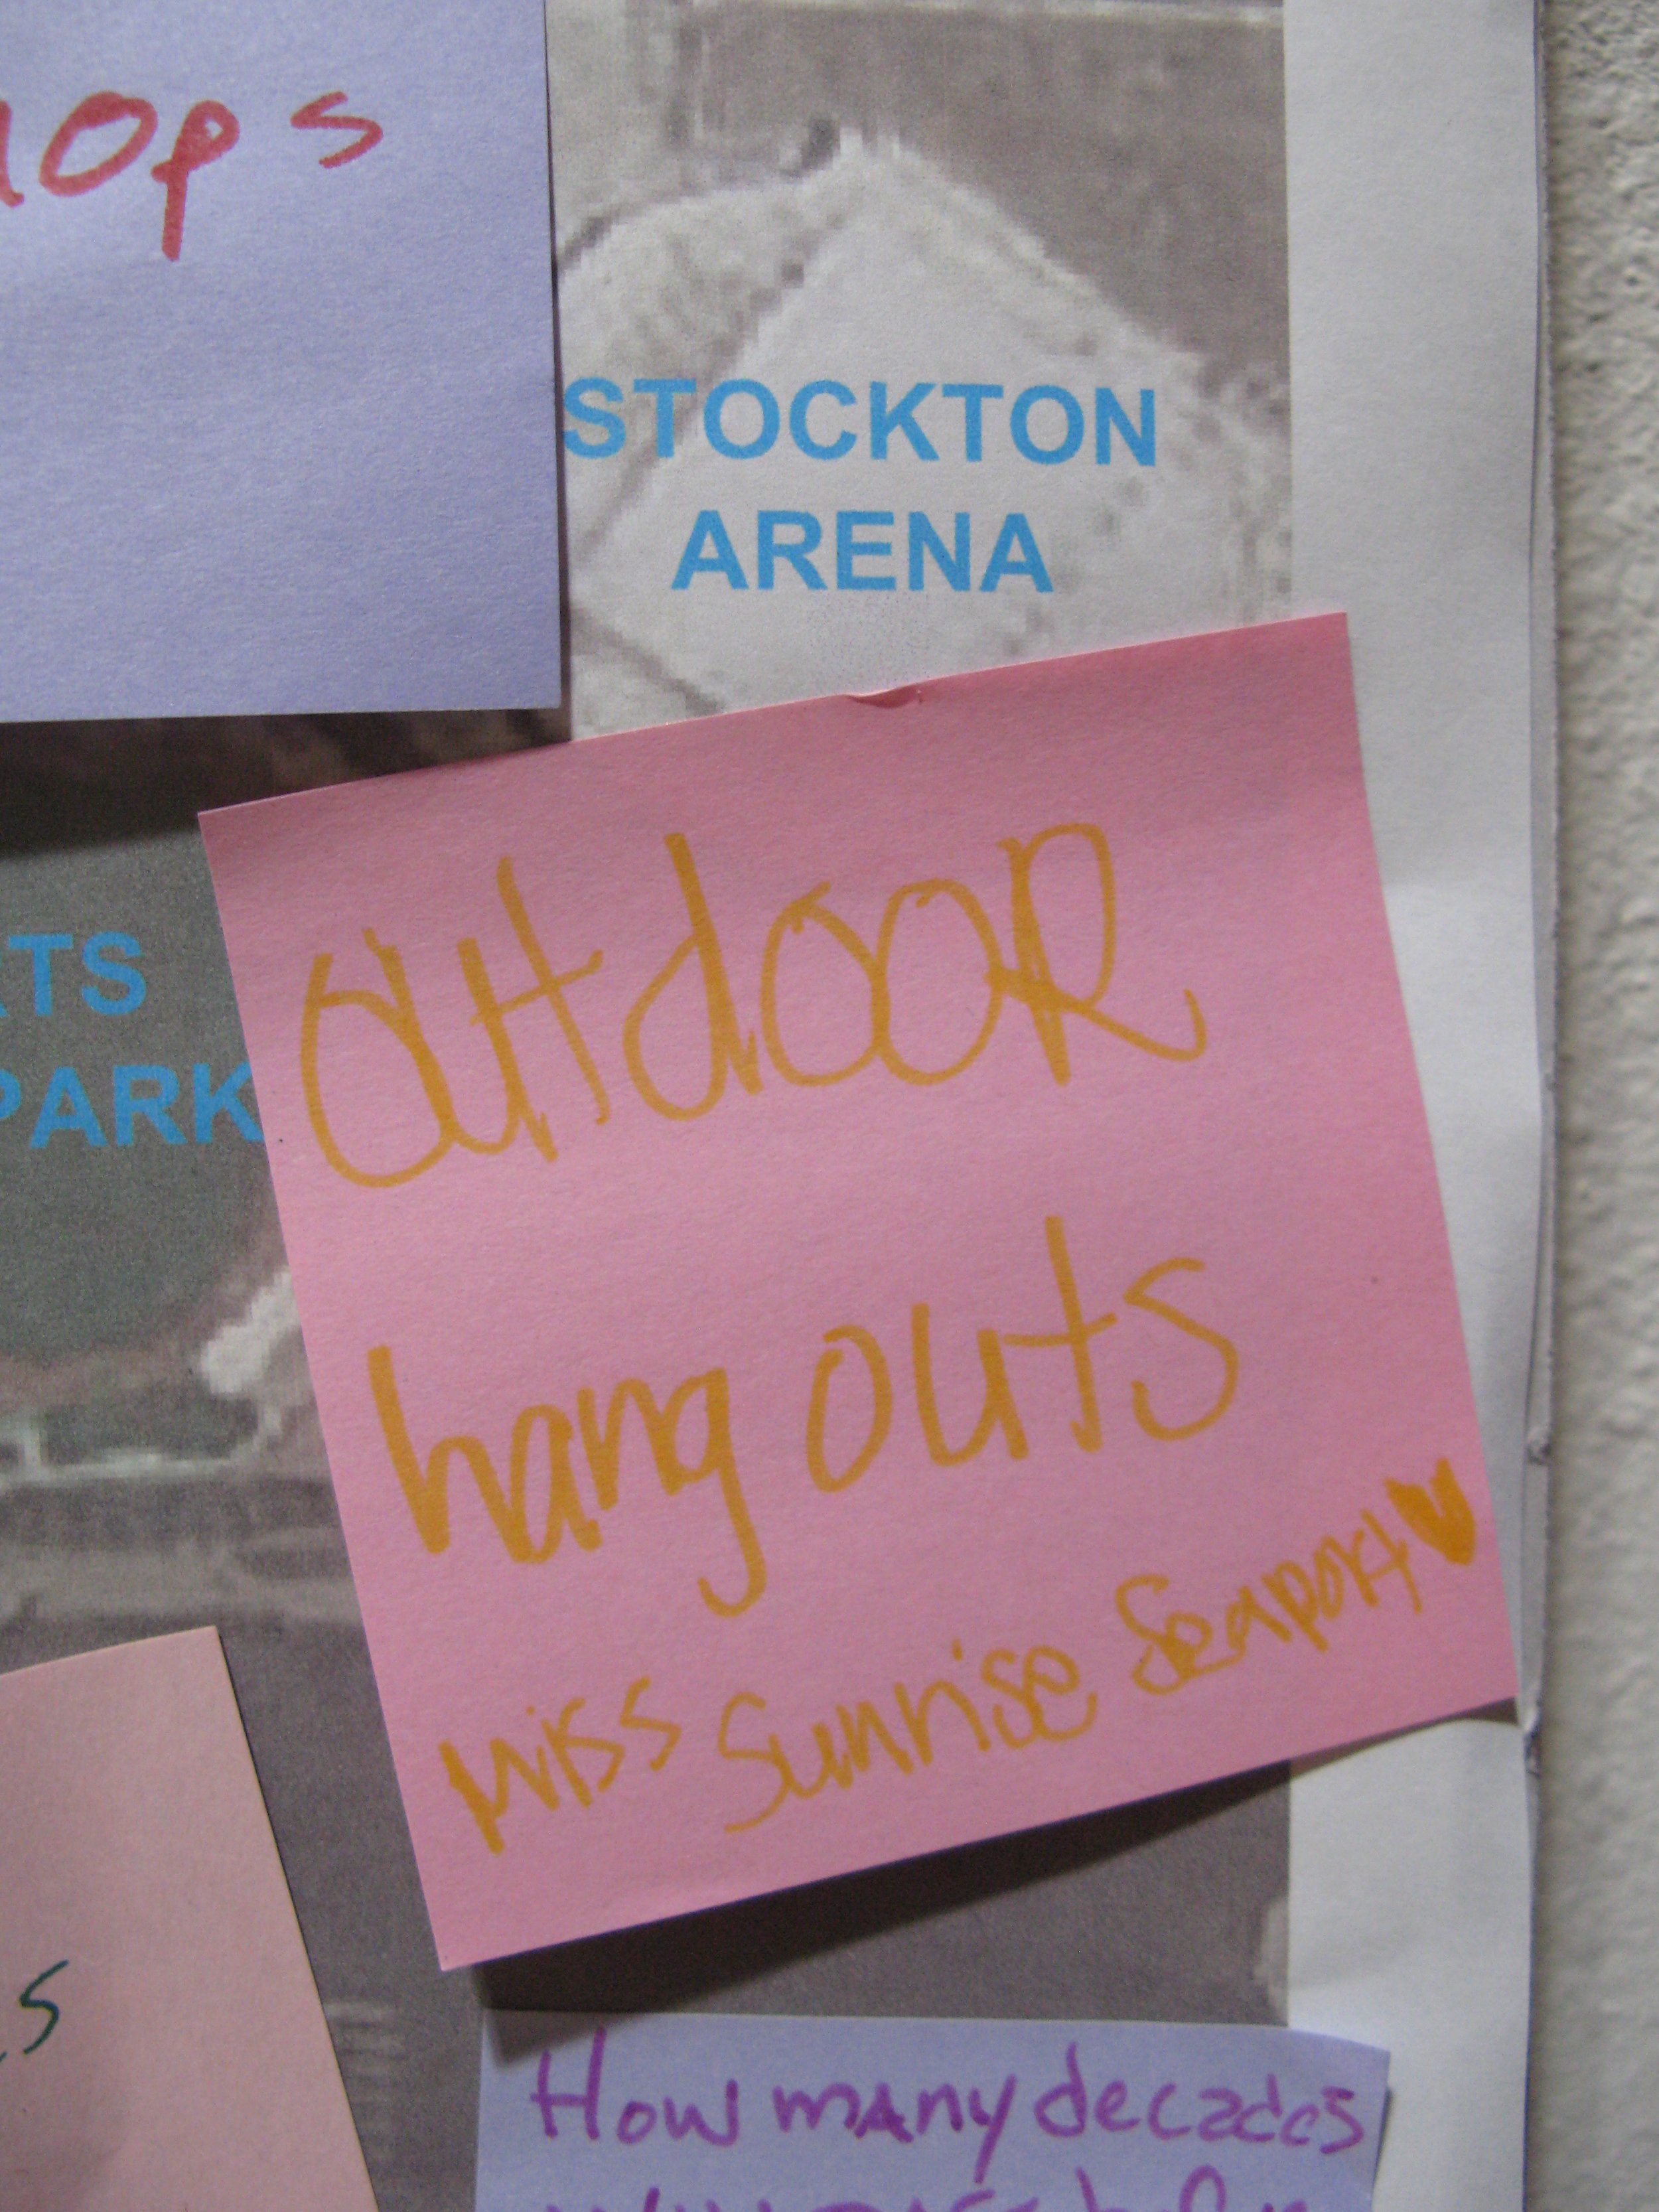 STOCKTON
ARENA
PARK
outdooR
hang outs
Miss Sunrise Seaport
How many decades